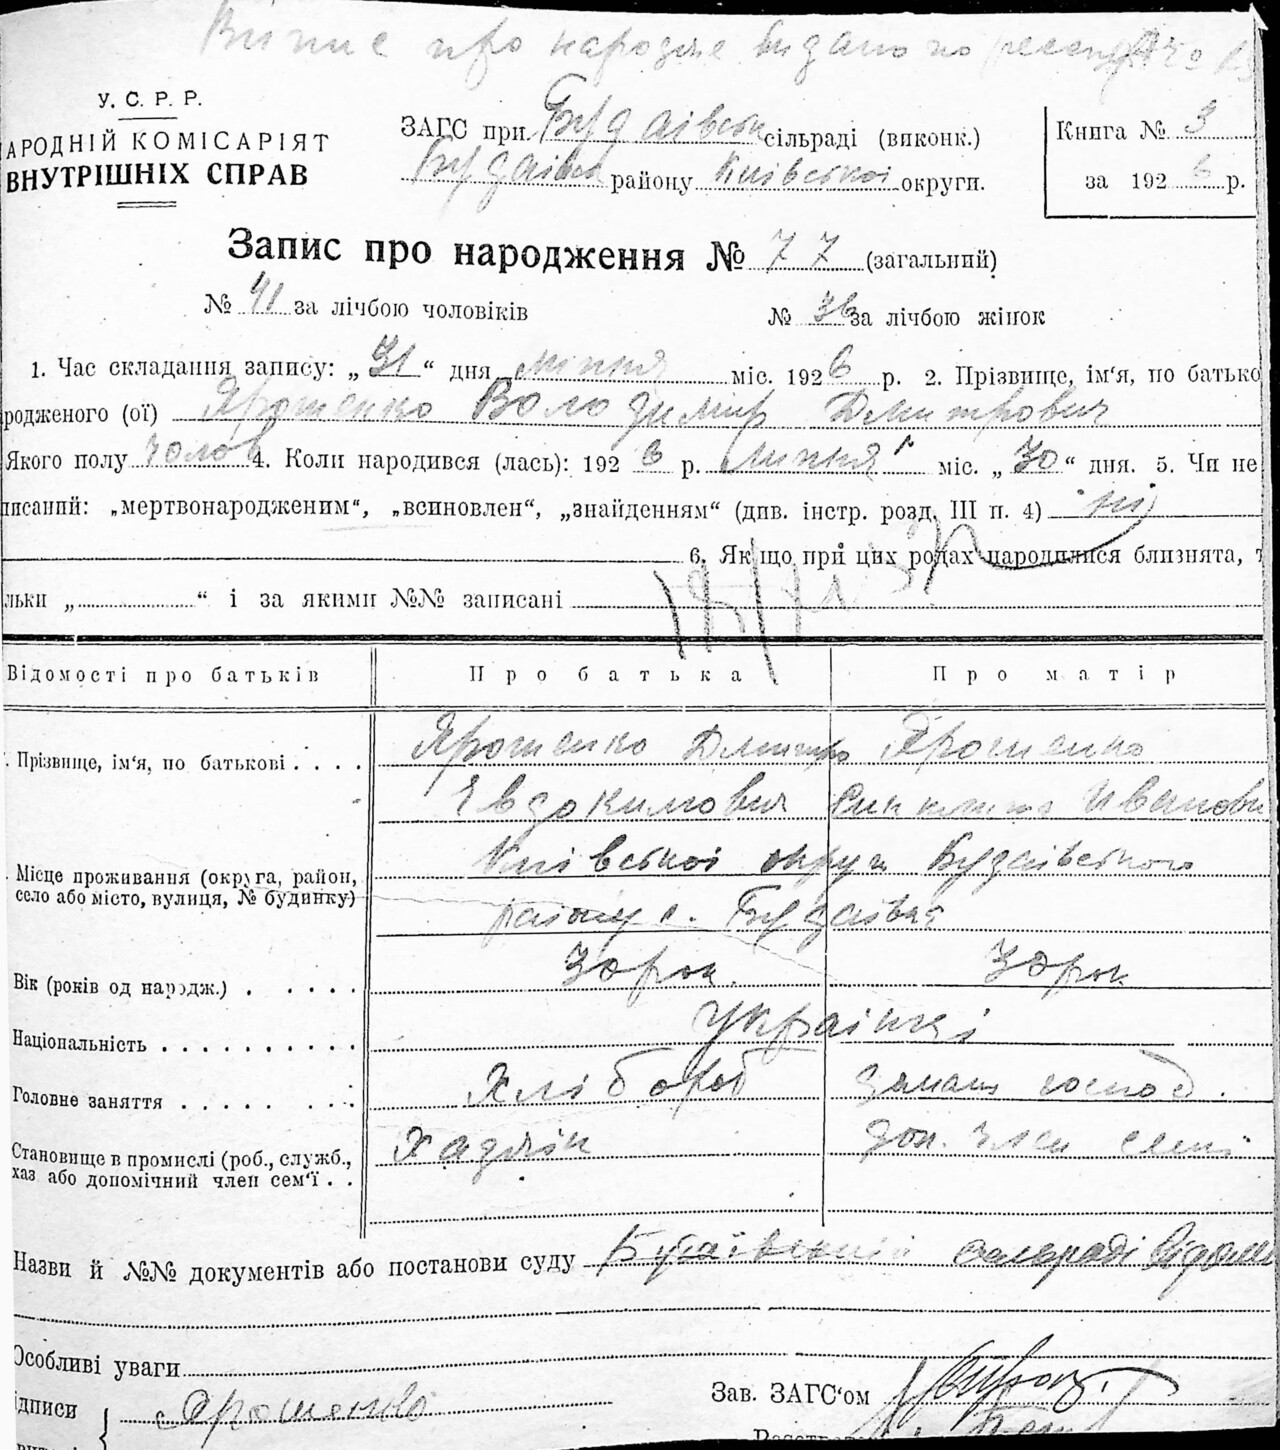 Випис про народже видано по
У. С. Р. Р.
АРОДНІЙ КОМІСАРІЯТ
ВНУТРІШНІХ СПРАВ
ЗАГС при Будаївськ сільраді (виконк.)
Будаївк району Київської округи.
Книга № 3
за 192 6 р.
Запис про народження № 77 (загальний)
№ 41 за лічбою чоловіків № 36 за лічбою жінок
1. Час складання запису: „ 31 “ дня липня міс. 192 6 р. 2. Прізвище, ім‘я, по батько
родженого (ої) Ярошенко Володимир Дмитрович
Якого полу чолов 4. Коли народився (лась): 192 6 р. липня міс. „ 30 “ дня. 5. Чи не
писаний: „мертвонародженим“, „всиновлен“, „знайденням“ (див. інстр. розд. III п. 4) ні
6. Якщо при цих родах народилися близнята, т
льки „ “ і за якими №№ записані
Відомості про батьків Про батька Про матір
Прізвище, ім‘я, по батькові . . . . Ярошенко Дмитро Ярошенко
Євдокимович Іванови
Місце проживання (округа, район, село або місто, вулиця, № будинку) Київської округи Будаївського
району с. Будаївка
Вік (років од народж.) . . . . . 30 рок. 30 рок
Національність . . . . . . . . . . українці
Головне заняття . . . . . . . . Хлібороб домаш господ.
Становище в промислі (роб., служб., хаз або допомічний член сем‘ї . . Хазяїн доп. член семї
Назви й №№ документів або постанови суду Будаївській сільраді відоми
Особливі уваги
ідписи { Ярошенко
Зав. ЗАГС‘ом